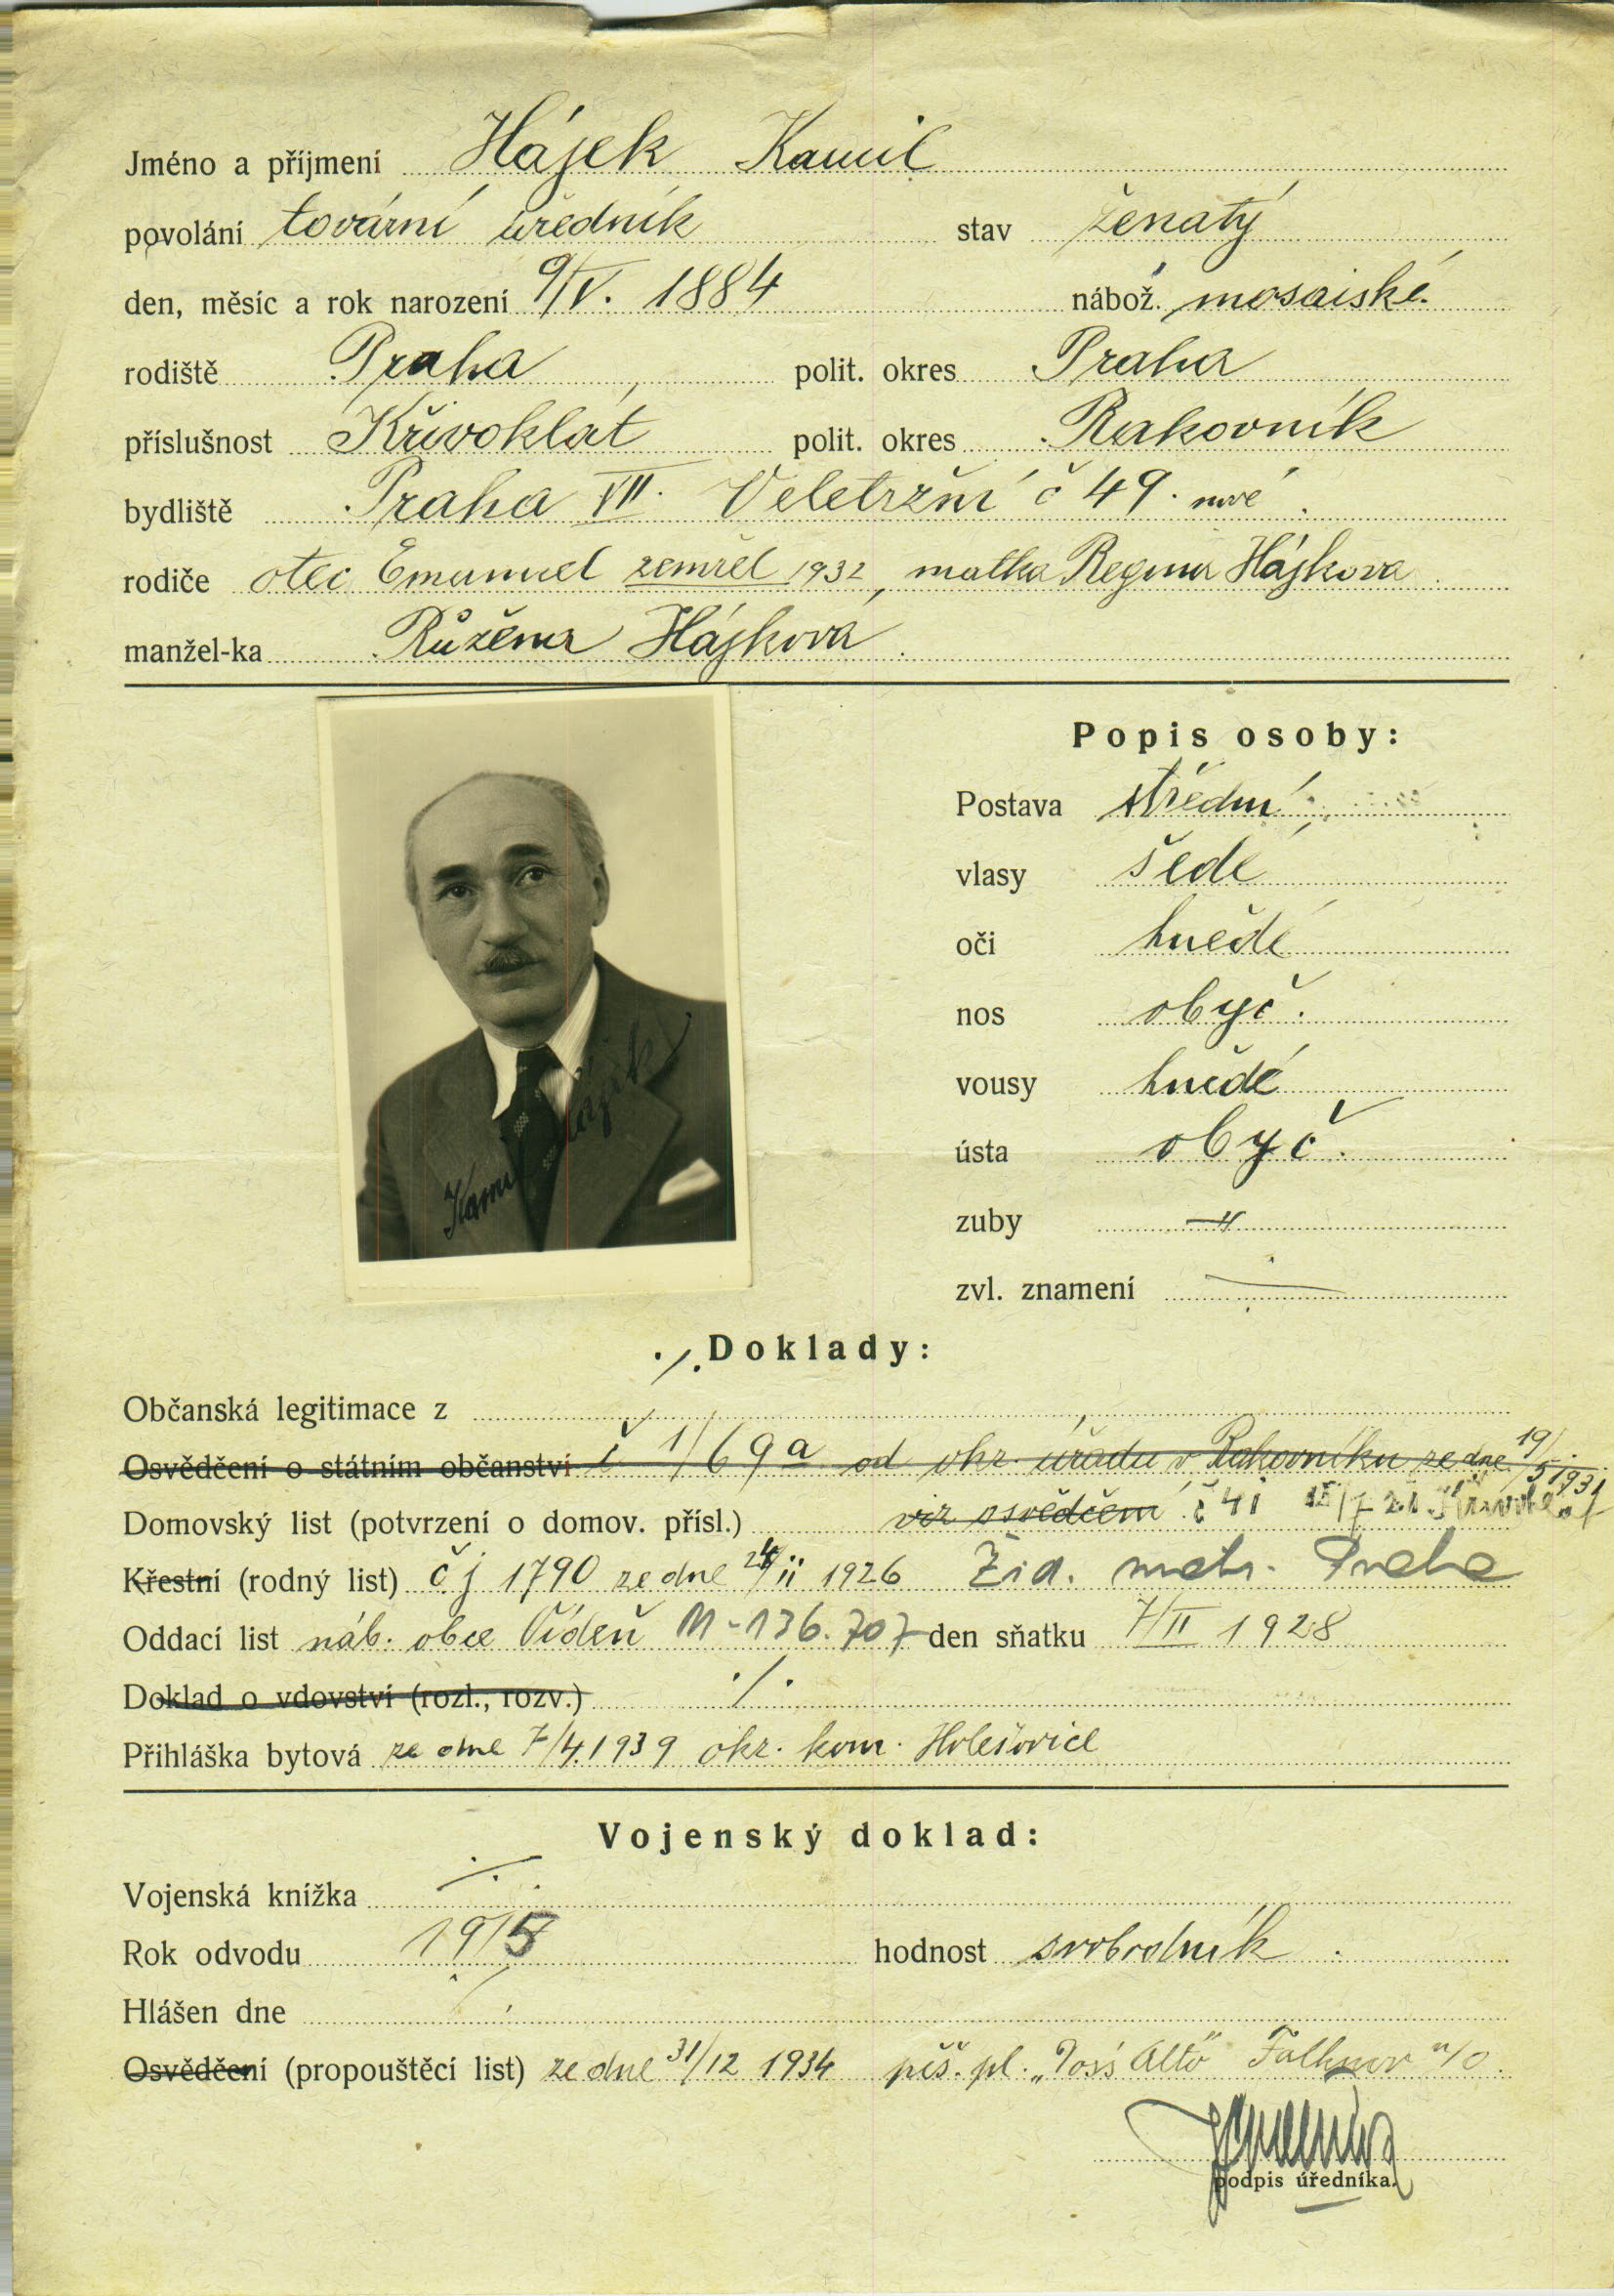 Jméno a příjmení Hájek Kamil
povolání tovární úředník stav ženatý
den, měsíc a rok narození 9/V. 1884 nábož. mosaiské.
rodiště Praha polit. okres Praha
příslušnost Křivoklát polit. okres Rakovník
bydliště Praha VII. Veletržní č 49. nové
rodiče otec Emanuel zemřel 1932, matka Regina Hájkova
manžel-ka Růžena Hájková
Popis osoby:
Postava střední
vlasy šedé
oči hnědé
nos obyč.
vousy hnědé
ústa obyč.
zuby —"—
zvl. znamení
Kamil Hájek
./. Doklady:
Občanská legitimace z
Osvědčení o státním občanství č 1/69a od okr. úřadu v Rakovníku ze dne 19/5 1931
Domovský list (potvrzení o domov. přísl.) viz osvědčení č 41 Křivoklát
Křestní (rodný list) čj 1790 ze dne 24/ii 1926 Žid. matr. Praha
Oddací list náb. obce Vídeň M-136.707 den sňatku 7/II 1928
Doklad o vdovství (rozl., rozv.) ./.
Přihláška bytová ze dne 7/4.1939 okr. kom. Holešovice
Vojenský doklad:
Vojenská knížka ./.
Rok odvodu 1915 hodnost svobodník.
Hlášen dne ./.
Osvědčení (propouštěcí list) ze dne 31/12 1934 pěš. pl. Falknov n/O.
podpis úředníka.